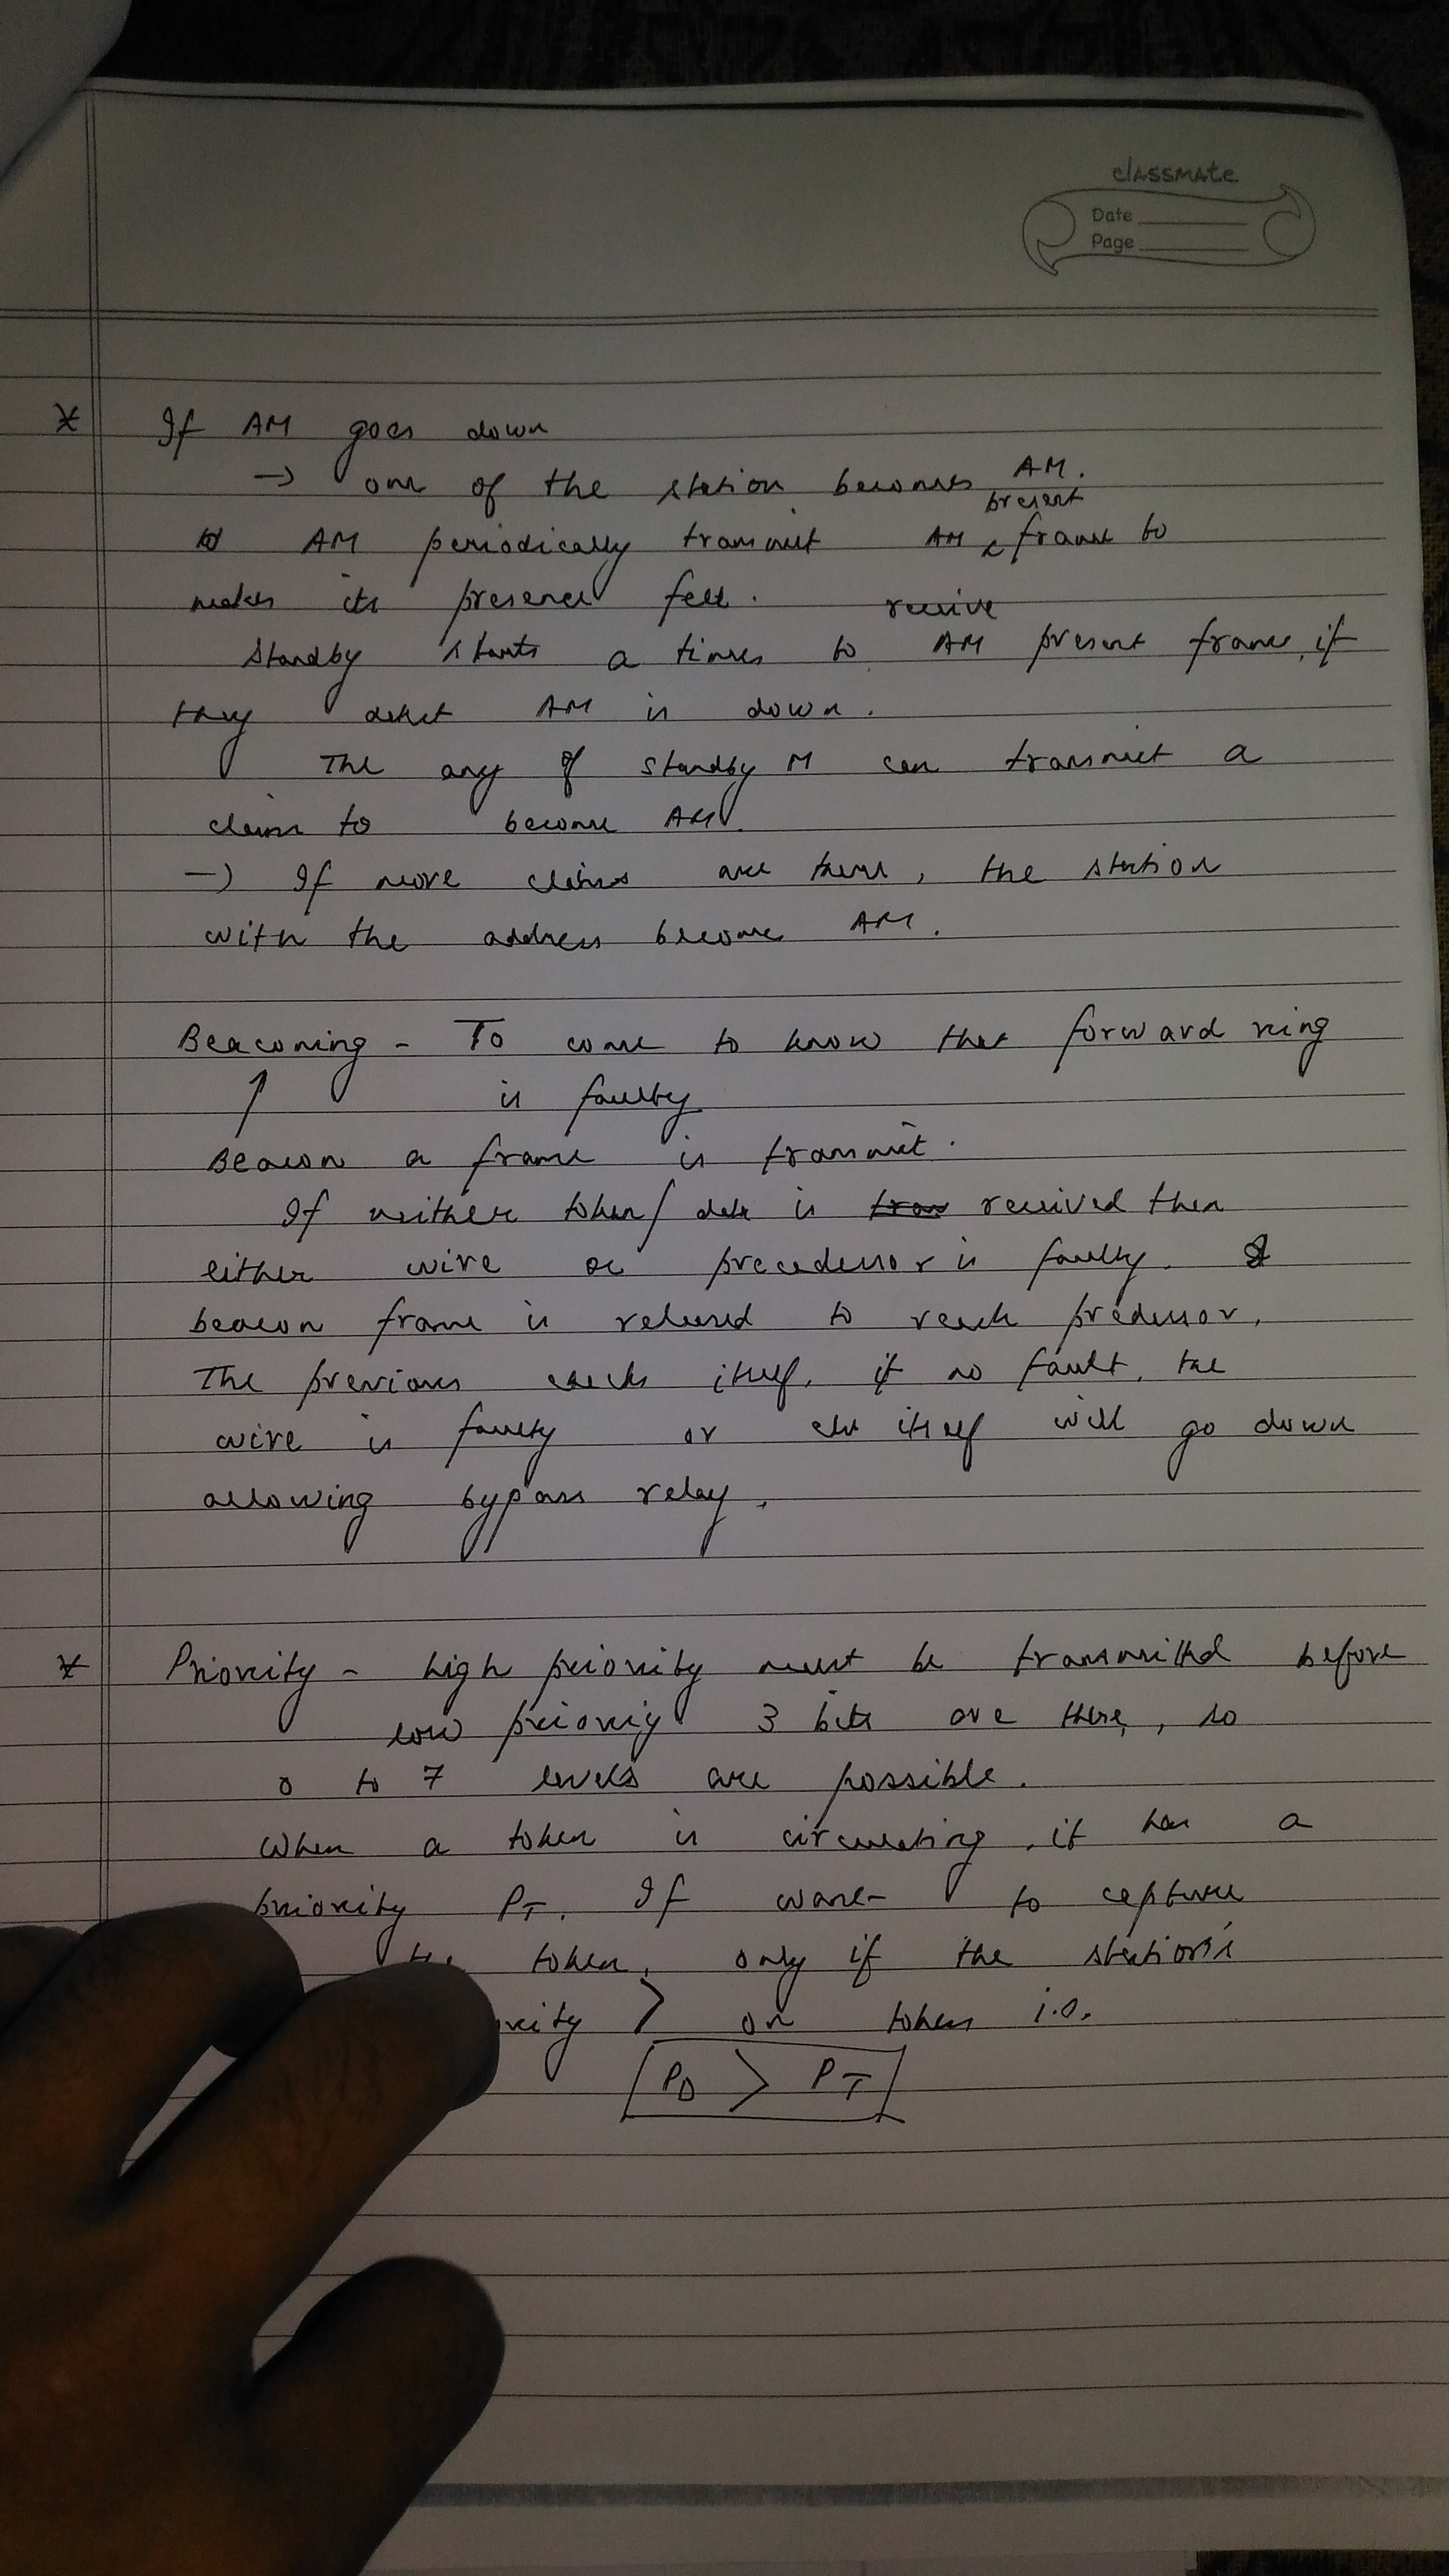 classmate
Date
Page
* If AM goes down
→ one of the station becomes AM.
AM periodically transmit AM present frame to
makes its presence felt.
Standby starts a timer to receive AM present frame, if
they detect AM is down.
The any of standby M can transmit a
claim to become AM.
→ If more claims are there, the station
with the address become AM.
Beaconing - To come to know that forward ring
is faulty
↑
Beacon a frame is transmit.
If neither token/data is received then
either wire or precedessor is faulty.
beacon frame is released to reach predessor.
The previous checks itself, if no fault, the
wire is faulty or else itself will go down
allowing bypass relay.
* Priority - high priority must be transmitted before
low prioriy 3 bits are there, so
0 to 7 levels are possible.
When a token is circulating, it has a
priority PT. If want to capture
the token, only if the station's
ority > on token i.e.
PD > PT